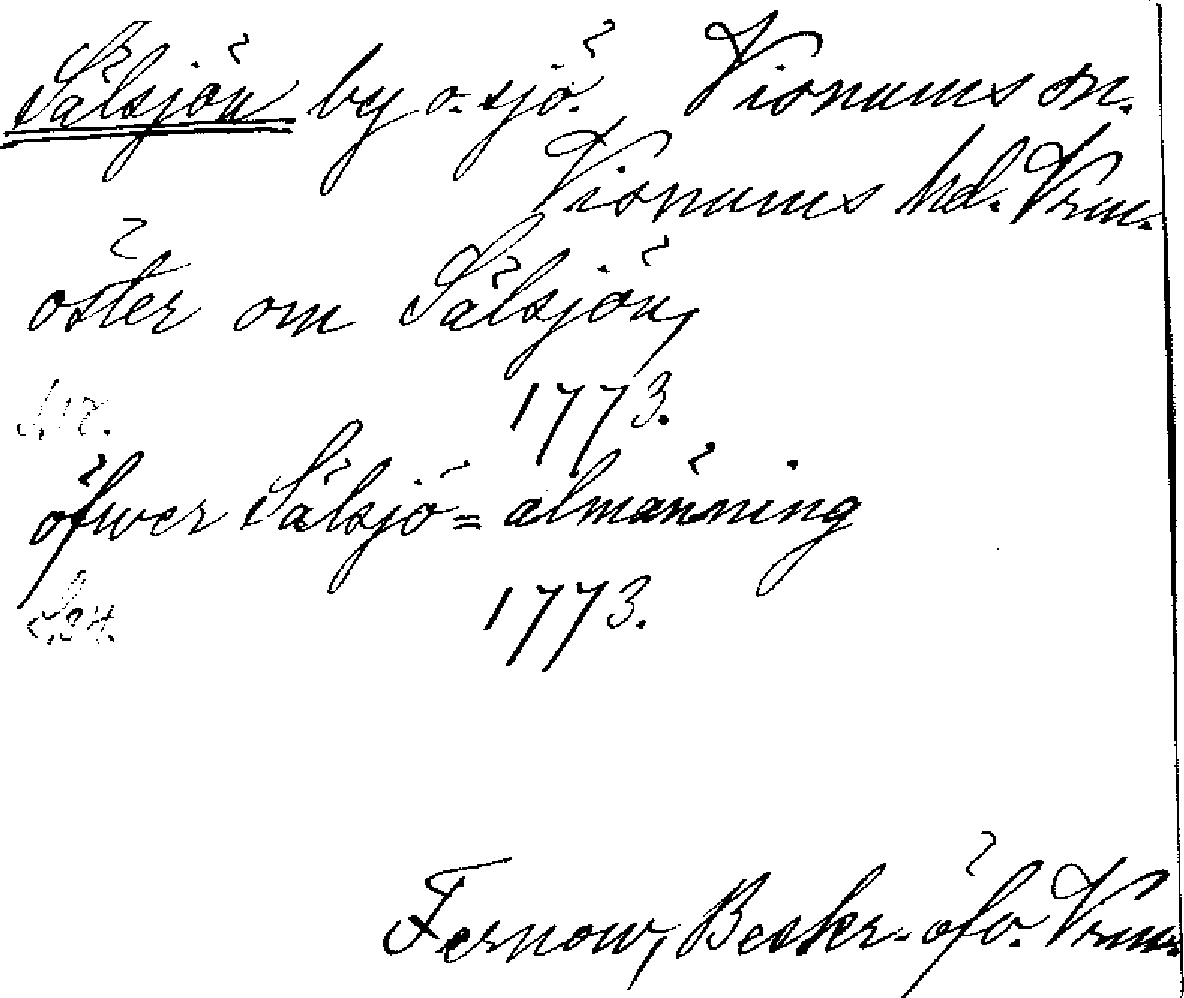 Sälsjön by o. sjö. Visnums sn.
Visnums hd. Vrm.
öster om Sälsjön,
S. 18. 1773.
öfwer Sälsjö= almänning
S. 94. 1773.
Fernow, Beskr. öfv. Vrm.